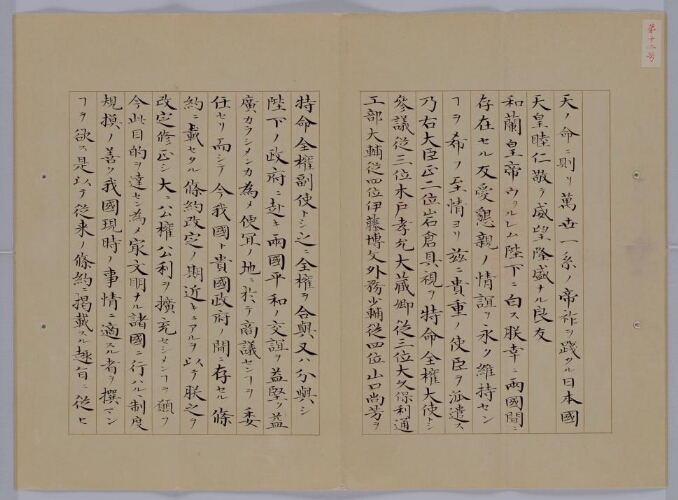 第十二号
天ノ命ニ則リ萬世一系ノ帝祚ヲ踐タル日本國
天皇睦仁敬テ威望隆盛ナル良友
和蘭皇帝ウリルレム陛下ニ白ス朕幸ニ兩國間ニ
存在セル友愛懇親ノ情誼ヲ永ク維持セン
ヿヲ希ノ至情ヨリ茲ニ貴重ノ使臣ヲ派遣ス
乃右大臣正二位岩倉具視ヲ特命全權大使トシ
參議從三位木戸孝允大藏卿從三位大久保利通
工部大輔從四位伊藤博文外務少輔從四位山口尚芳ヲ
特命全權副使トシ之ニ全權ヲ合與又ハ分與シ
陛下ノ政府ニ赴キ兩國平和ノ交誼ヲ益堅ク益
廣カラシメンカ為メ便宜ノ地ニ於テ商議センヿヲ委
任セリ而シテ今我國ト貴國政府ノ間ニ存セル條
約ニ載セタル條約改定ノ期近キニアルヲ以テ朕之ヲ
改定修正シ大ニ公權公利ヲ擴充セシメンヿヲ願フ
今此目的ヲ達セン為メ文明ナル諸國ニ行ハル制度
規摸ノ善ク我國現時ノ事情ニ適スル者ヲ撰マン
ヿヲ欲ス是以テ從来ノ條約ニ掲載スル趣旨ニ從ヒ